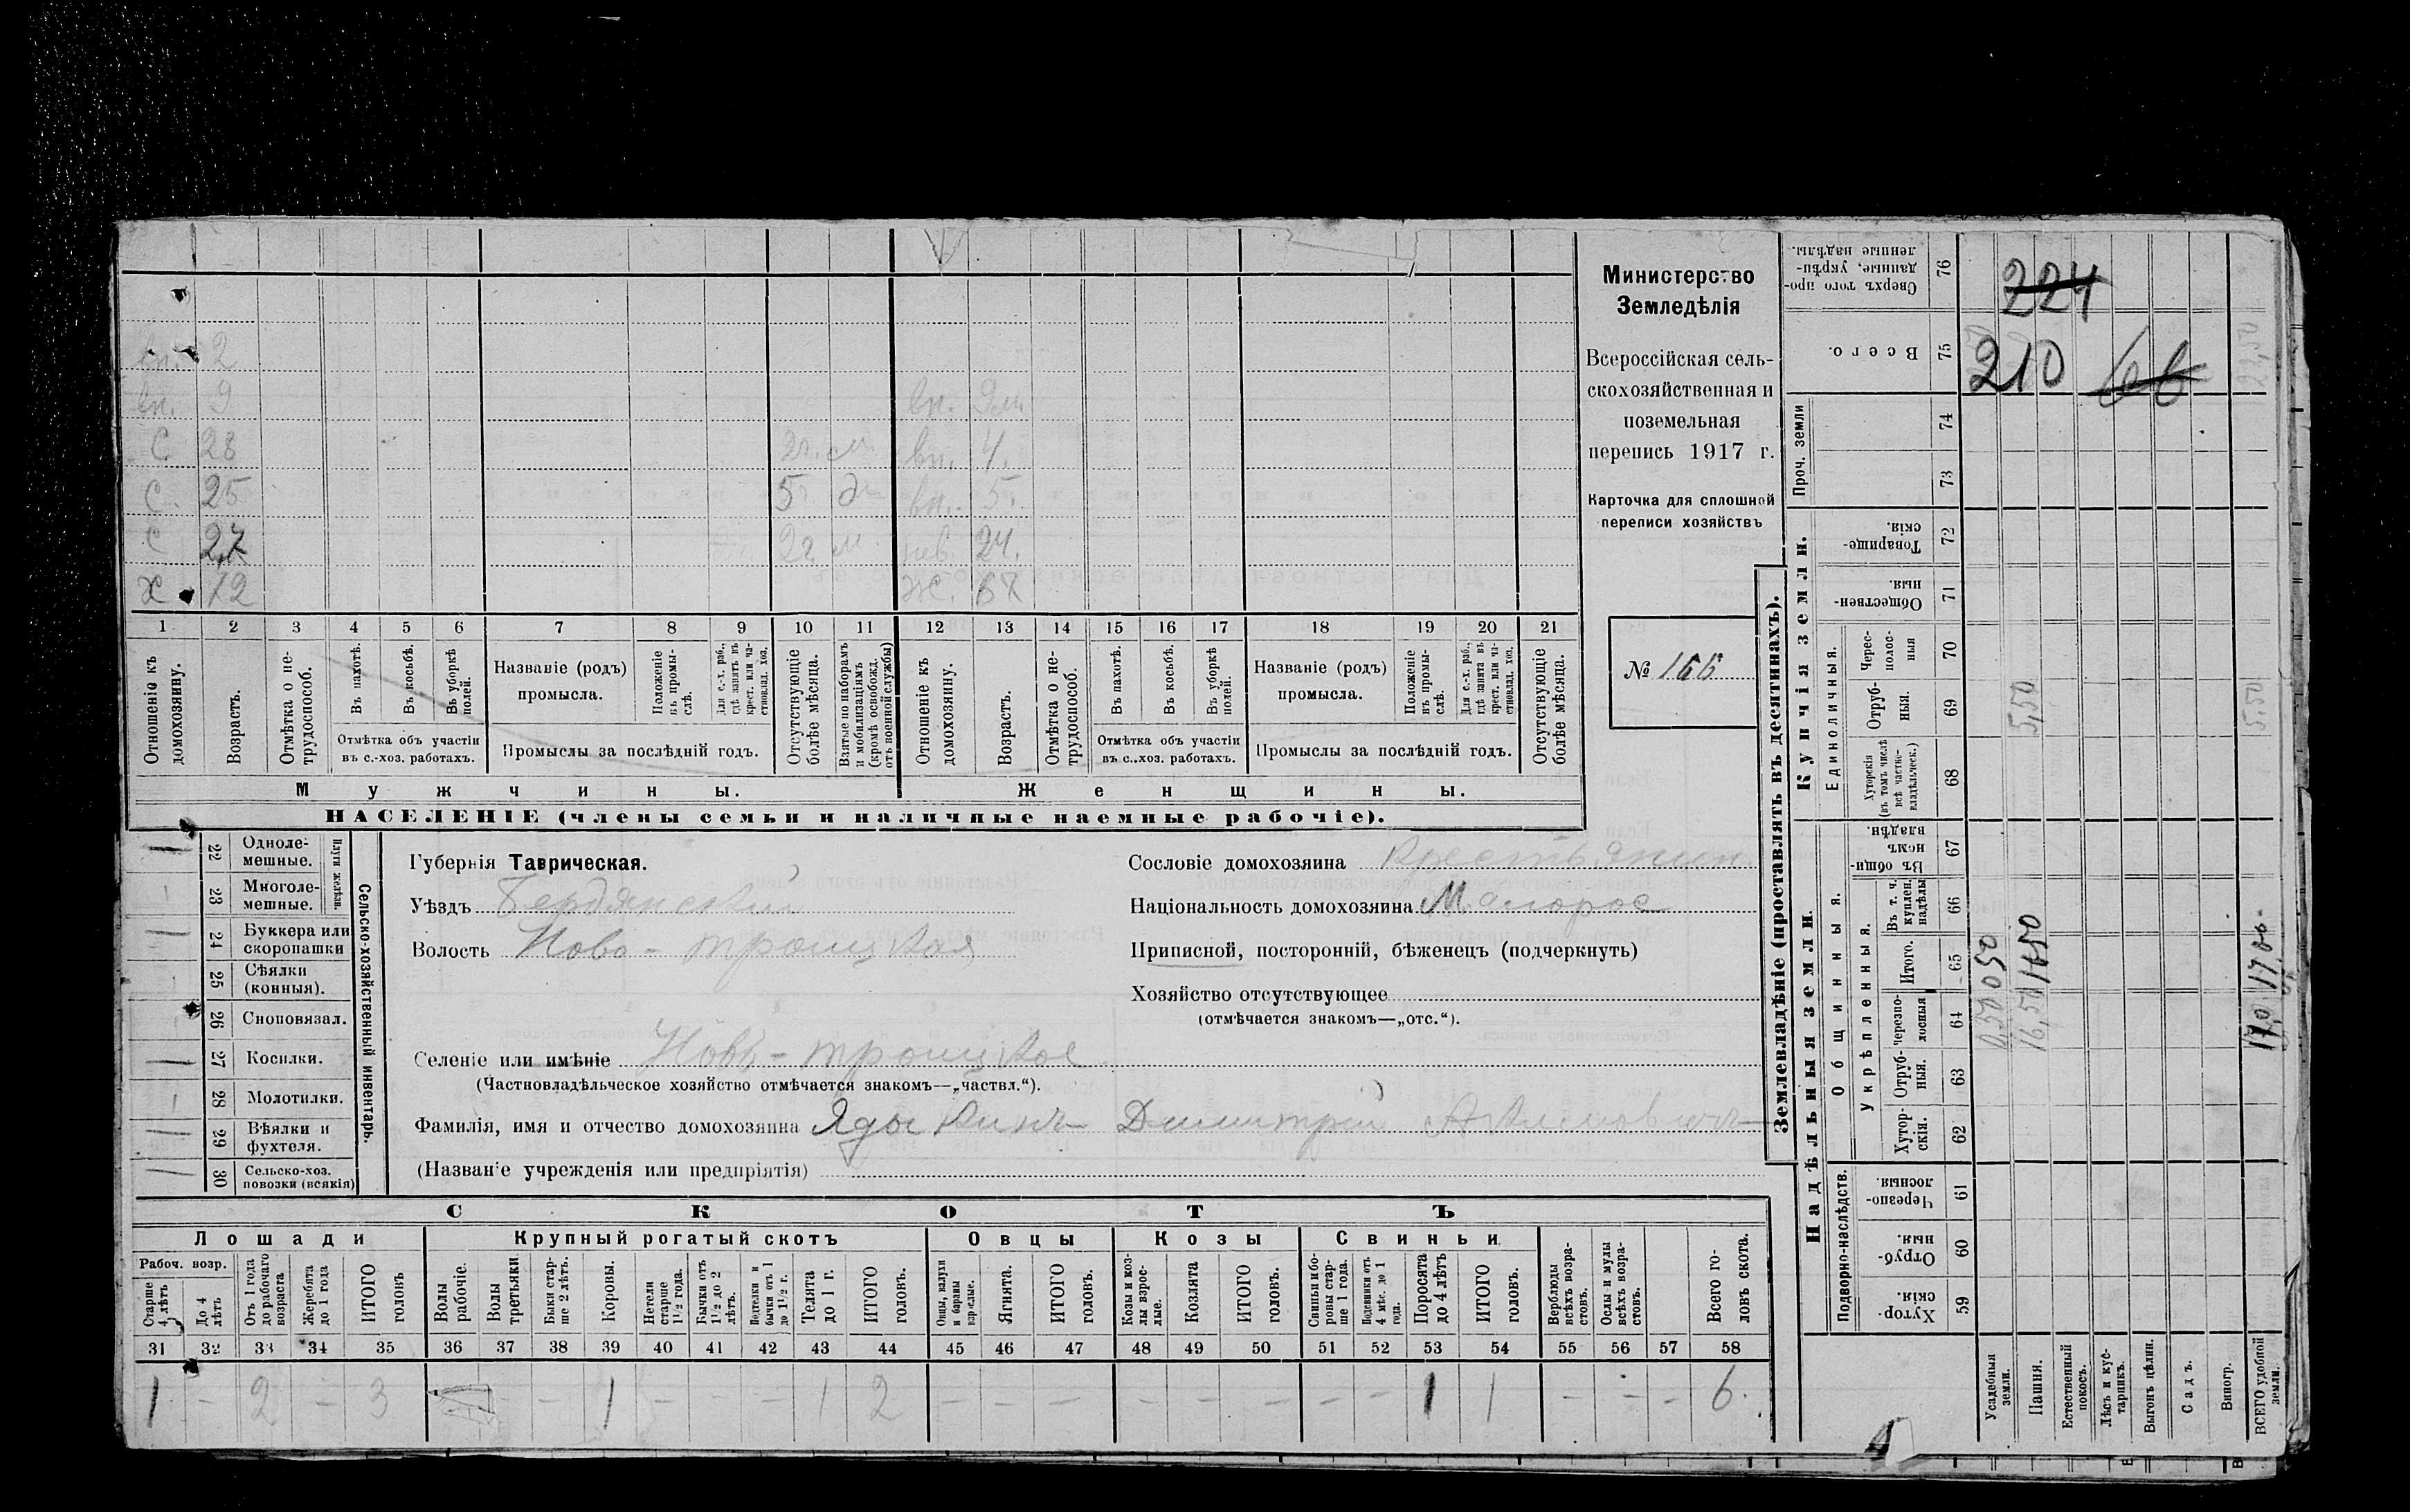 Министерство
Земледѣлія
Всероссійская сель-
скохозяйственная и
поземельная
перепись 1917 г.
Карточка для сплошной
переписи хозяйствъ
№ 166
224
210
вп. 2
вп. 9 вп. 9 м.
С 28 2 г. м. вп. 4.
С. 25 5 г. вп. 5.
С 27 2 г. м. нев. 24.
Х 72 Ж. 67
1 2 3 4 5 6 7 8 9 10 11 12 13 14 15 16 17 18 19 20 21
Отношеніе къ домохозяину.
Возрастъ.
Отмѣтка о не-трудоспособ.
Въ пахотѣ.
Въ косьбѣ.
Въ уборкѣ полей.
Отмѣтка объ участіи
въ с.-хоз. работахъ.
Названіе (родъ)
промысла.
Положеніе въ промы-слѣ.
Для с.-х. раб., гдѣ занятъ въ крест. или ча-стновлад. хоз.
Промыслы за послѣдній годъ.
Отсутствующіе болѣе мѣсяца.
Взятые по наборамъ и мобилизаціямъ (кромѣ освобожд. отъ военной службы)
Отношеніе къ домохозяину.
Возрастъ.
Отмѣтка о не-трудоспособ.
Въ пахотѣ.
Въ косьбѣ.
Въ уборкѣ полей.
Отмѣтка объ участіи
въ с..хоз. работахъ.
Названіе (родъ)
промысла.
Положеніе въ промы-слѣ.
Для с.-х. раб., гдѣ занята въ крест. или ча-стновлад. хоз.
Промыслы за послѣдній годъ.
Отсутствующіе болѣе мѣсяца.
Мужчины. Женщины.
НАСЕЛЕНІЕ (члены семьи и наличные наемные рабочіе).
Сельско-хозяйственный инвентарь.
Плуги желѣзн.
22 Одноле-мешные.
23 Многоле-мешные.
24 Буккера или скоропашки
25 Сѣялки (конныя).
26 Сноповязал.
27 Косилки.
28 Молотилки.
29 Вѣялки и фухтеля.
30 Сельско-хоз. повозки (всякія)
Губернія Таврическая.
Уѣздъ Бердянскій
Волость Ново-троицкая
Сословіе домохозяина Крестьянин
Національность домохозяина Малорос
Приписной, посторонній, бѣженецъ (подчеркнуть)
Хозяйство отсутствующее
(отмѣчается знакомъ—„отс.“).
Селеніе или имѣніе Ново-троицкое
(Частновладѣльческое хозяйство отмѣчается знакомъ—„частвл.“).
Фамилія, имя и отчество домохозяина Ядыкинъ Димитрій
(Названіе учрежденія или предпріятія)
СКОТЪ
Лошади Крупный рогатый скотъ Овцы Козы Свиньи
Рабоч. возр.
Старше 4 лѣтъ
До 4 лѣтъ
Отъ 1 года до рабочаго возраста
Жеребята до 1 года
ИТОГО головъ
Волы рабочіе.
Волы третьяки
Быки стар-ше 2 лѣтъ.
Коровы.
Нетели старше 1½ года.
Бычки отъ 1½ до 2 лѣтъ.
Подтелки и бычки отъ 1 до 1½ г.
Телята до 1 г.
ИТОГО головъ.
Овцы, валухи и бараны взрослые.
Ягнята.
ИТОГО головъ.
Козы и коз-лы взрос-лые.
Козлята
ИТОГО головъ.
Свиньи и бо-ровы стар-ше 1 года.
Подсвинки отъ 4 мѣс. до 1 года.
Поросята до 4 лѣтъ
ИТОГО головъ.
Верблюды всѣхъ возра-стовъ.
Ослы и мулы всѣхъ возра-стовъ.
Всего го-ловъ скота.
31 32 33 34 35 36 37 38 39 40 41 42 43 44 45 46 47 48 49 50 51 52 53 54 55 56 57 58
1 - 2 - 3 - 1 - - - 1 2 - - - - - - - - 1 1 - - - 6.
Землевладѣніе (проставлять въ десятинахъ).
Купчія земли.
Надѣльныя земли.
Сверхъ того про-данные, укрѣп-ленные надѣлы. 76
Всего. 75
Проч. земли 74 73
Товарище-скія. 72
Обществен-ныя. 71
Единоличныя.
Черес-полос-ныя 70
Отруб-ныя. 69
Хуторскія (въ томъ числѣ всѣ частно-владѣльческ.) 68
Общинныя.
Въ общи-номъ владѣн. 67
Укрѣпленныя.
Въ т. ч. куплен. надѣлы 66
Итого. 65
Черезпо-лосныя 64
Отруб-ныя. 63
Хутор-скія. 62
Подворно-наслѣдств.
Черезпо-лосныя. 61
Отруб-ныя. 60
Хутор-скія. 59
Усадебныя земли.
Пашня.
Естественный покосъ.
Лѣсъ и кус-тарникъ.
Выгонъ цѣлин.
Садъ.
Виногр.
ВСЕГО удобной земли.
5,50
5,50
050
050
16,50